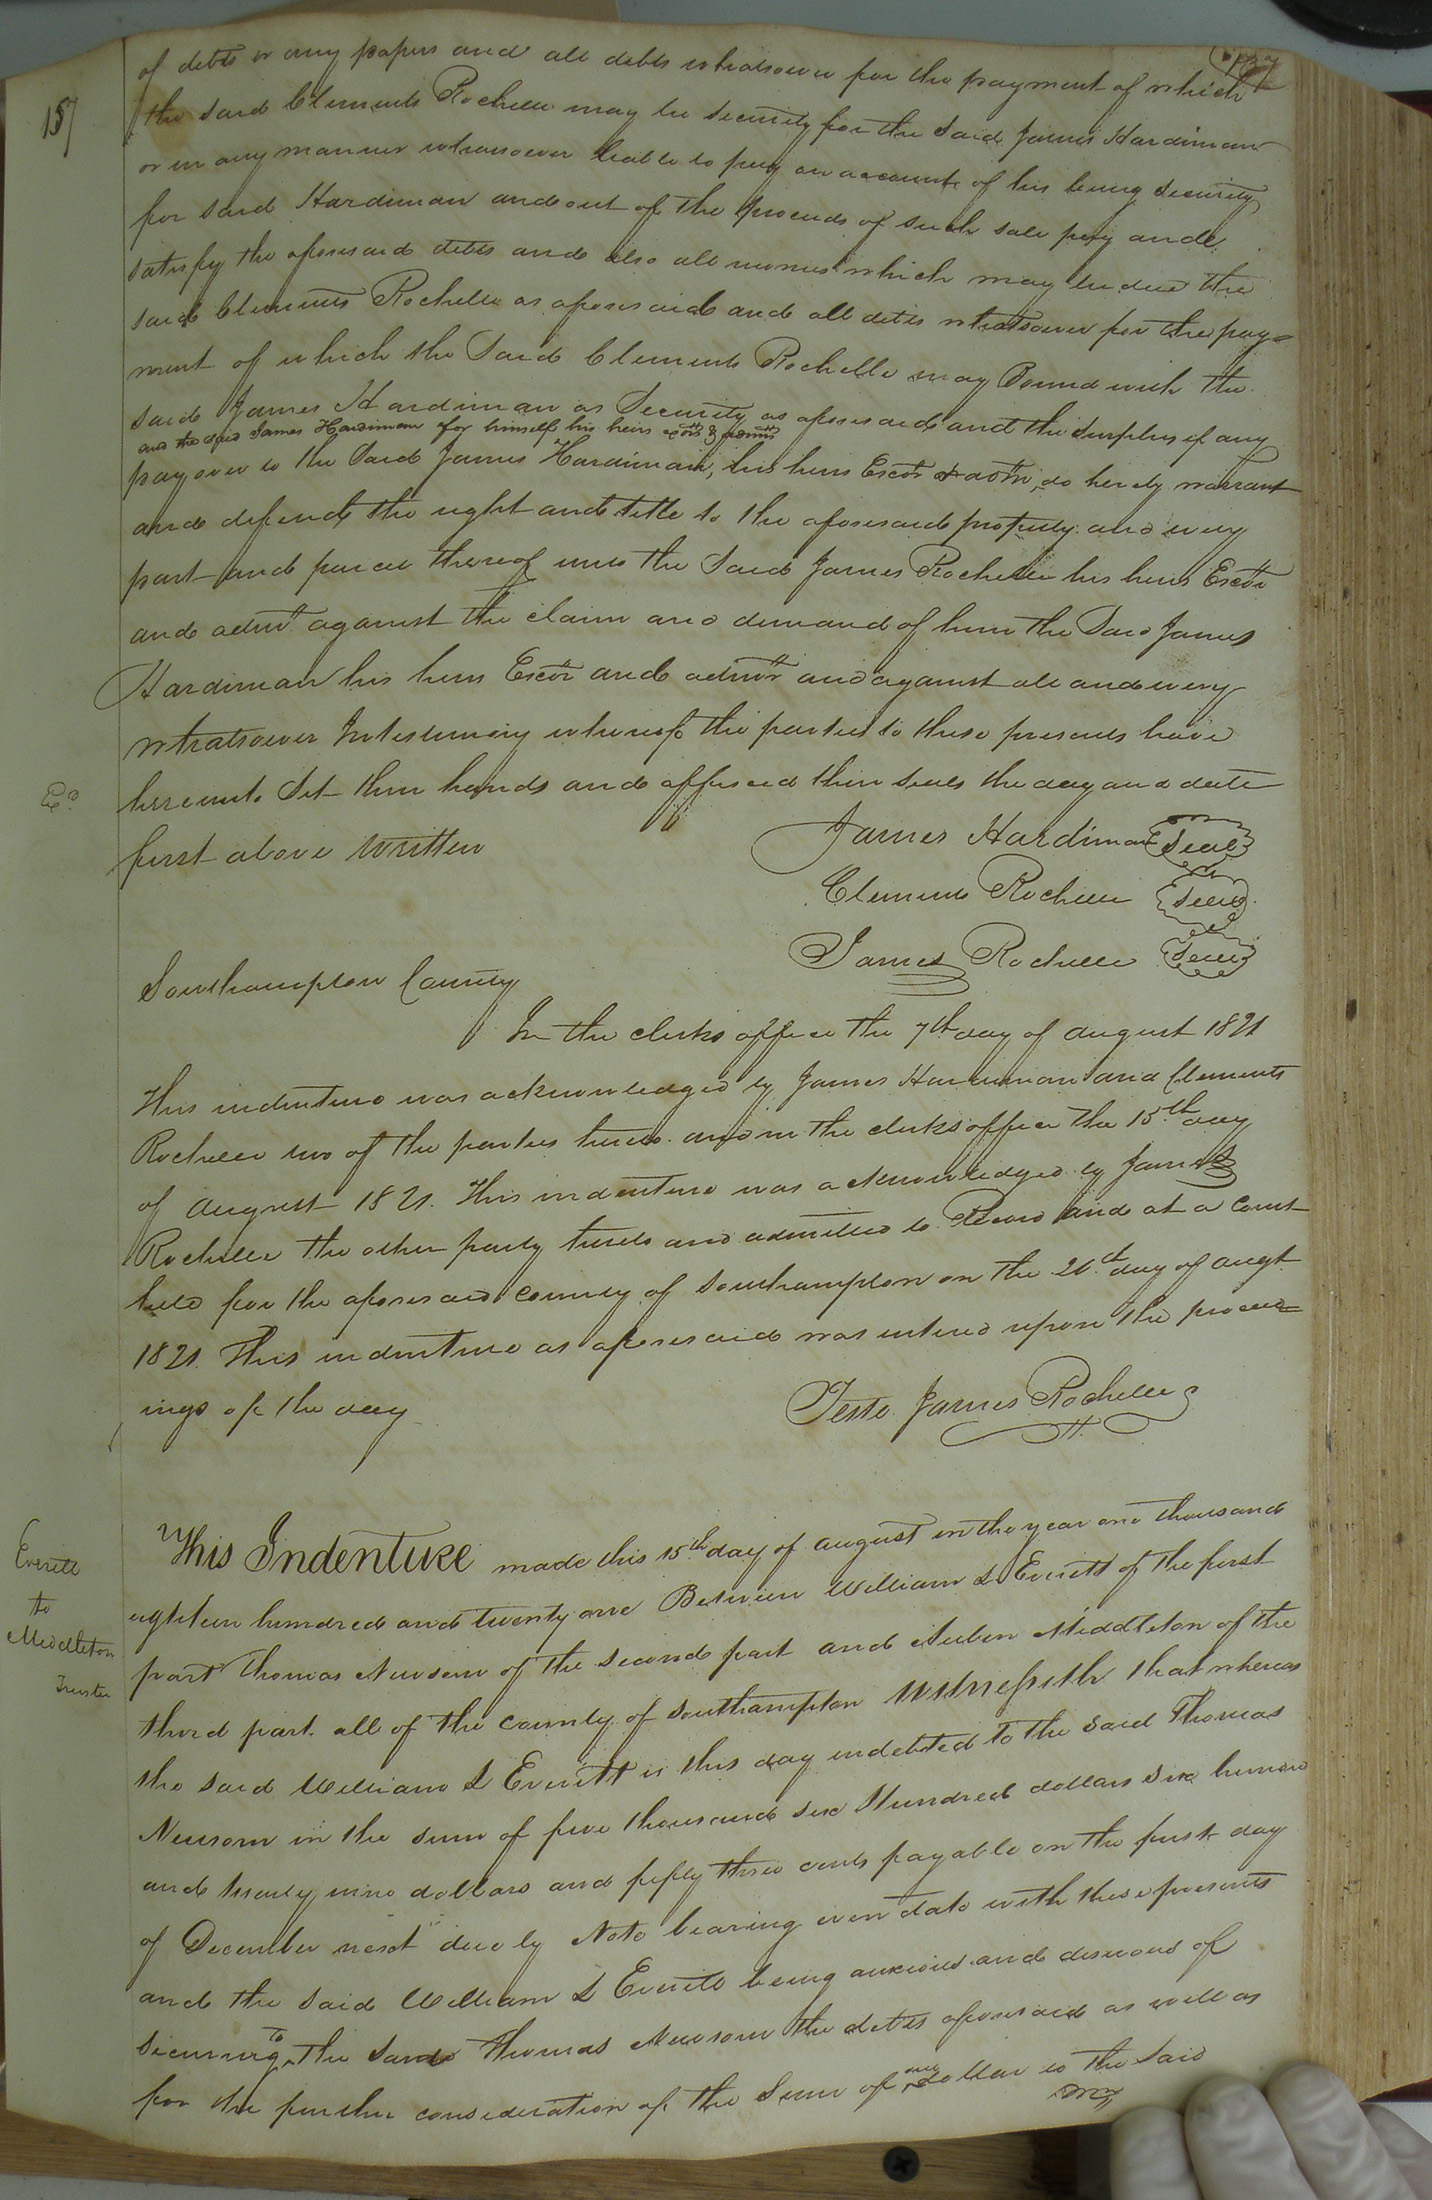 157
of debts or any papers and all debts whatsoever for the payment of which
the said Clements Rochelle may be security for the said James Hardiman
or in any manner whatsoever liable to pay on account of his being security
for said Hardiman and out of the proceeds of such sale pay and
satisfy the aforesaid debts and also all monies which may be due the
said Clements Rochelle as aforesaid and all debts whatsoever for the pay=
ment of which the Said Clements Rochelle may Bound with the
said James Hardiman as Security as aforesaid and the surplus if any
and the said James Hardiman for himself his heirs exors & admrs
pay over to the Said James Hardiman, his heirs Excrs & adm, do hereby warrant
and defend the right and title to the aforesaid property and every
part and parcel thereof unto the Said James Rochelle his heirs Excrs
and admrs against the claim and demand of him the Said James
Hardiman his heirs Excrs and admrs and against all and every
whatsoever In testimony whereof the parties to these presents have
hereunto Set their hands and affixed their seals the day and date
first above written
James Hardiman Seal
Clements Rochelle Seal
James Rochelle Seal
Southampton County
In the clerks office the 7th day of august 1821
This indenture was acknowledged by James Hardiman and Clements
Rochelle two of the parties hereto and in the clerks office the 15th day
of august 1821. This indenture was acknowledged by James
Rochelle the other party hereto and admitted to Record and at a Court
held for the aforesaid county of Southampton on the 20th day of augt
1821. This indenture as aforesaid was entered upon the proceed=
ings of the day
Teste James Rochelle
Everitt
to
Middleton
Trustee
This Indenture made this 15th day of august in the year one thousand
eighteen hundred and twenty one Between William L Everitt of the first
part Thomas Newsom of the second part and Auben Middleton of the
third part all of the county of Southampton Witnesseth that whereas
the said William L Everitt is this day indebted to the said Thomas
Newsom in the sum of five thousand six Hundred dollars six hundred
and twenty nine dollars and fifty three cents payable on the first day
of December next due by Note bearing even date with these presents
and the said William L Everitt being anxious and desirous of
securing to the said Thomas Newsom the debts aforesaid as well as
for the further consideration of the Sum of one dollar to the said